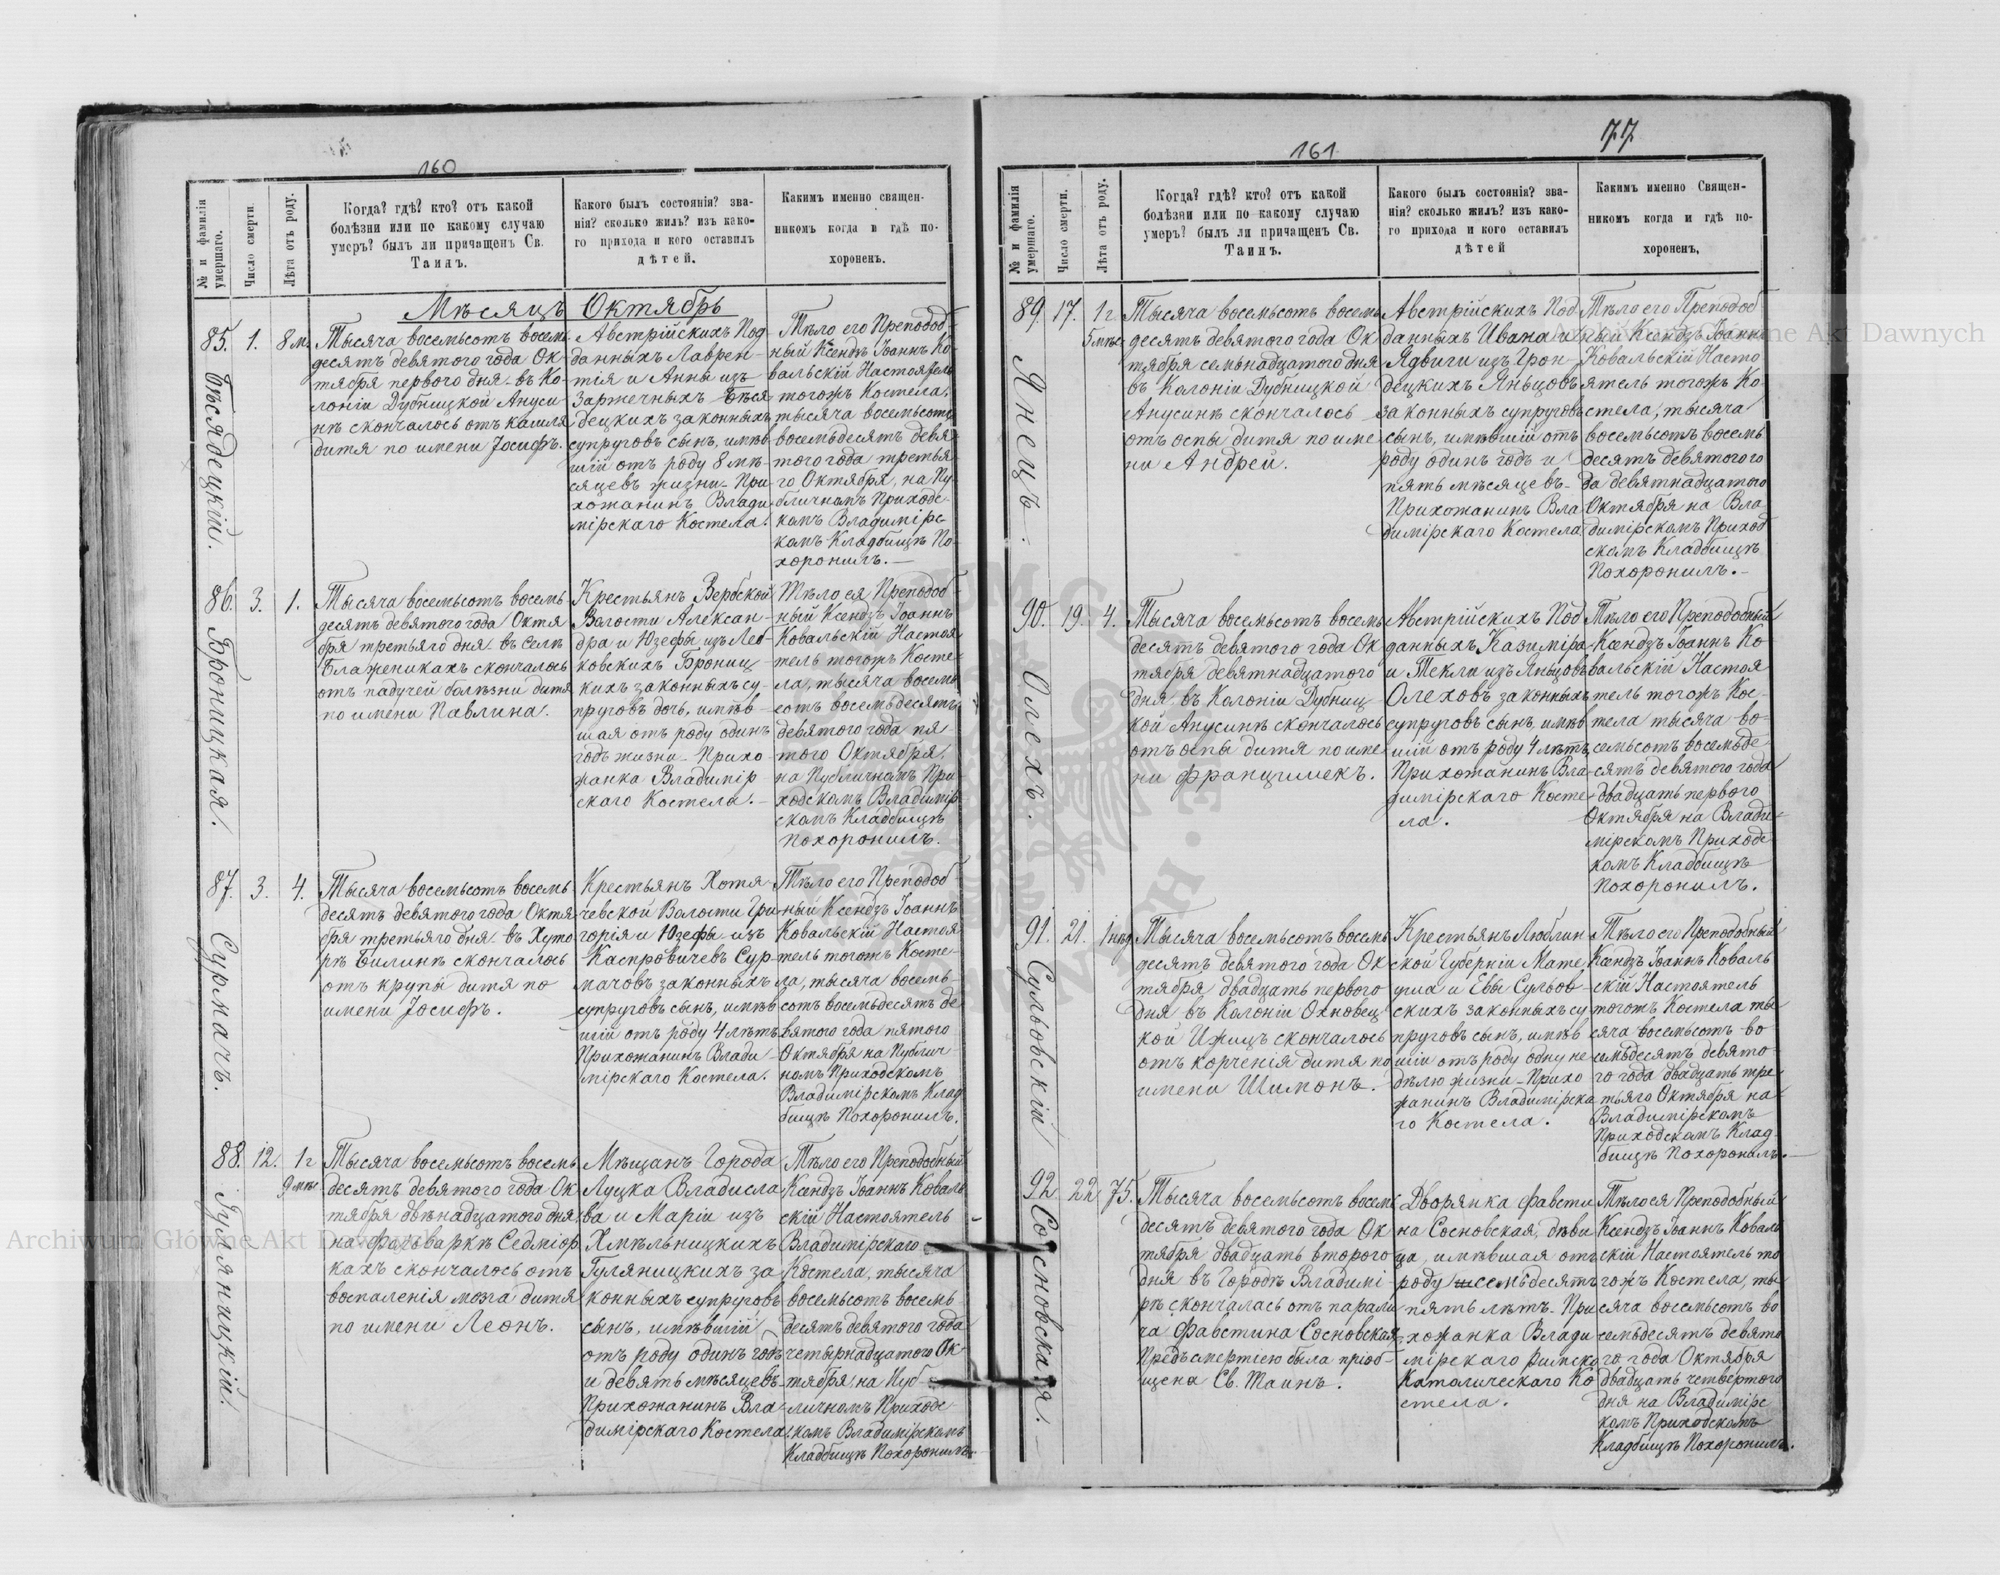 160
№ и фамилія умершаго.
Число смерти.
Лѣта отъ роду.
Когда? гдѣ? кто? отъ какой
болѣзни или по какому случаю
умеръ? былъ ли причащенъ Св.
Таинъ.
Какого былъ состоянія? зва-
нія? сколько жилъ? изъ како-
го прихода и кого оставилъ
дѣтей.
Какимъ именно священ-
никомъ когда и гдѣ по-
хороненъ.
Мѣсяцъ Октябрь
85.
Бѣсядецкій.
1.
8 м.
Тысяча восемьсотъ восемь
десятъ девятого года Ок
тября первого дня въ Ко-
лоніи Дубницкой Ануси
нѣ скончалось отъ кашля
дитя по имени Іосифъ.
Австрійскихъ Под
данныхъ Лаврен-
тія и Анны изъ
Заржечныхъ Бѣся
децкихъ законныхъ
супруговъ сынъ, имѣв
шій отъ роду 8 мѣ-
сяцевъ жизни - При
хожанинъ Влади
мірскаго Костела.
Тѣло его Преподоб-
ный Ксендзъ Іоаннъ Ко
вальскій Настоятель
тогожъ Костела,
тысяча восемьсотъ
восемьдесятъ девя
того года третья
го Октября, на Пу
бличномъ Приходс-
комъ Владимірс-
комъ Кладбищѣ По
хоронилъ. —
86.
Броницкая.
3.
1.
Тысяча восемьсотъ восемь
десятъ девятого года Октя
бря третьяго дня въ селѣ
Блаженикахъ скончалось
отъ падучей болѣзни дитя
по имени Павлина.
Крестьянъ Вербской
Волости Алексан-
дра и Юзефы изъ Лев-
ковскихъ Брониц-
кихъ законныхъ су-
пруговъ дочь, имѣв-
шая отъ роду одинъ
годъ жизни - Прихо
жанка Владимір
скаго Костела. -
Тѣло ея Преподоб
ный Ксендзъ Іоаннъ
Ковальскій Настоя
тель тогожъ Косте-
ла, тысяча восемь
сотъ восемьдесятъ
девятого года пя-
того Октября,
на Публичномъ При
ходскомъ Владимір
скомъ Кладбищѣ
Похоронилъ.
87.
Сурмачъ.
3.
4.
Тысяча восемьсотъ восемь
десятъ девятого года Октя
бря третьяго дня въ Хуто
рѣ Билинѣ скончалось
отъ крупы дитя по
имени Іосифъ.
Крестьянъ Хотя
чевской Волости Гри
горія и Юзефы изъ
Каспровичевъ Сур
мачовъ законныхъ
супруговъ сынъ, имѣв
шій отъ роду 4 лѣтъ
Прихожанинъ Влади
мірскаго Костела.
Тѣло его Преподоб-
ный Ксендзъ Іоаннъ
Ковальскій Настоя
тель тогожъ Косте-
ла, тысяча восемь-
сотъ восемьдесятъ де
вятого года пятого
Октября на Публич-
номъ Приходскомъ
Владимірскомъ Клад
бищѣ Похоронилъ.
88.
Гуляницкій.
12.
1 г
9 мѣс.
Тысяча восемьсотъ восемь
десятъ девятого года Ок
тября двѣнадцатого дня
на фальваркѣ Седміор
кахъ скончалось отъ
воспаленія мозга дитя
по имени Леонъ.
Мѣщанъ Города
Луцка Владисла
ва и Маріи изъ
Хмѣльницкихъ
Гуляницкихъ за
конныхъ супруговъ
сынъ, имѣвшій
отъ роду одинъ годъ
и девять мѣсяцевъ
Прихожанинъ Вла-
димірскаго Костела
Тѣло его Преподобный
Ксендзъ Іоаннъ Коваль
скій Настоятель
Владимірскаго
Костела, тысяча
восемьсотъ восемь
десятъ девятого года
четырнадцатого Ок-
тября, на Пуб-
личномъ Приходс
комъ Владимірскомъ
Кладбищѣ Похоронилъ.
161
77
№ и фамилія умершаго.
Число смерти.
Лѣта отъ роду.
Когда? гдѣ? кто? отъ какой
болѣзни или по какому случаю
умеръ? былъ ли причащенъ Св.
Таинъ.
Какого былъ состоянія? зва-
нія? сколько жилъ? изъ како-
го прихода и кого оставилъ
дѣтей
Какимъ именно Священ-
никомъ когда и гдѣ по-
хороненъ.
89.
Янецъ.
17.
1 г
5 мѣс
Тысяча восемьсотъ восемь
десятъ девятого года Ок
тября семьнадцатого дня
въ Колоніи Дубницкой
Анусинѣ скончалось
отъ оспы дитя по име
ни Андрей.
Австрійскихъ Под
данныхъ Ивана и
Ядвиги изъ Грон-
децкихъ Яньцовъ
законныхъ супруговъ
сынъ, имѣвшій отъ
роду одинъ годъ и
пять мѣсяцевъ -
Прихожанинъ Вла
димірскаго Костела
Тѣло его Преподоб
ный Ксендзъ Іоаннъ
Ковальскій Насто
ятель тогожъ Ко
стела, тысяча
восемьсотъ восемь
десятъ девятого го
да девятнадцатого
Октября на Вла
димірскомъ Приход
скомъ Кладбищѣ
Похоронилъ. -
90.
Олехъ.
19.
4.
Тысяча восемьсотъ восемь
десятъ девятого года Ок
тября девятнадцатого
дня въ Колоніи Дубниц
кой Анусинѣ скончалось
отъ оспы дитя по име
ни Францишекъ.
Австрійскихъ Под
данныхъ Казиміра
и Текли изъ Яньцовъ
Олеховъ законныхъ
супруговъ сынъ, имѣв
шій отъ роду 4 лѣтъ
Прихожанинъ Вла-
димірскаго Косте
ла.
Тѣло его Преподобный
Ксендзъ Іоаннъ Ко
вальскій Настоя
тель тогожъ Кос-
тела тысяча во-
семьсотъ восемьде
сятъ девятого года
двадцать первого
Октября на Влади-
мірскомъ Приходс
комъ Кладбищѣ
Похоронилъ.
91.
Сульовскій
21.
1 нѣд
Тысяча восемьсотъ восемь
десятъ девятого года Ок
тября двадцать первого
дня въ Колоніи Охновец
кой Ижицъ скончалось
отъ корченія дитя по
имени Шимонъ.
Крестьянъ Люблин
ской Губерніи Мате
уша и Евы Сульов-
скихъ законныхъ су
пруговъ сынъ, имѣв
шій отъ роду одну не
дѣлю жизни - Прихо
жанинъ Владимірска
го Костела.
Тѣло его Преподобный
Ксендзъ Іоаннъ Коваль
скій Настоятель
тогожъ Костела ты
сяча восемьсотъ во
семьдесятъ девято-
го года двадцать тре
тьяго Октября на
Владимірскомъ
Приходскомъ Клад-
бищѣ Похоронилъ. —
92
Сосновская.
22
75.
Тысяча восемьсотъ восемь
десятъ девятого года Ок
тября двадцать второго
дня въ Городѣ Владимі-
рѣ скончалась отъ парали
ча Фавстина Сосновская
Предъ смертію была пріоб-
щена Св. Таинъ.
Дворянка Фавсти
на Сосновская, дѣви
ца, имѣвшая отъ
роду семьдесятъ
пять лѣтъ - При
хожанка Влади
мірскаго Римско
Католическаго Ко
стела.
Тѣло ея Преподобный
Ксендзъ Іоаннъ Коваль
скій Настоятель то
гожъ Костела, ты
сяча восемьсотъ во
семьдесятъ девято
го года Октября
двадцать четвертого
дня на Владимірс
комъ Приходскомъ
Кладбищѣ Похоронилъ.
Archiwum Główne Akt Dawnych
Archiwum Główne Akt Dawnych